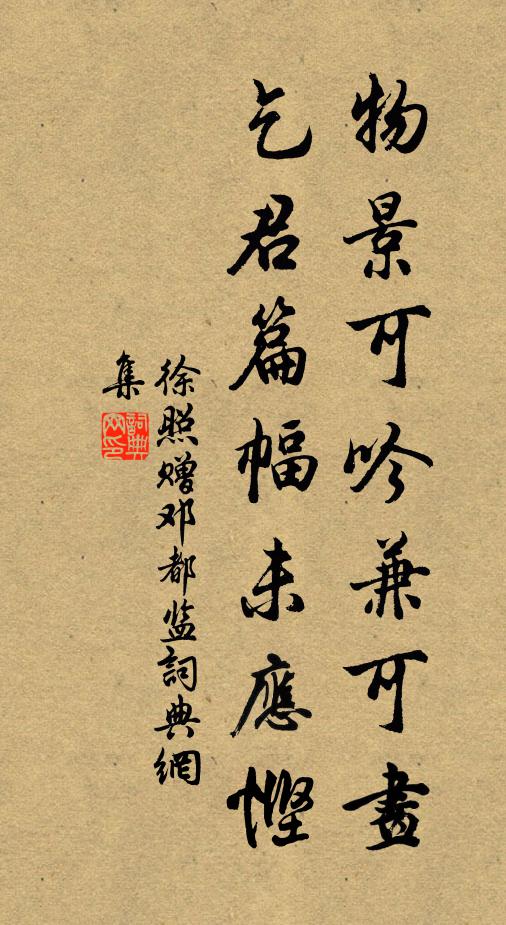 物景可吟兼可畫
乞君篇幅未應慳
徐照赠邓都监詞典網
集
詞典網印